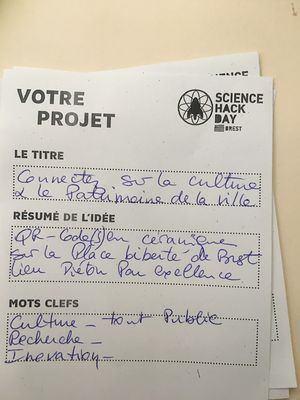 VOTRE
PROJET
SCIENCE
HACK
DAY
BREST
LE TITRE
Connectez sur la culture
& le Patrimoine de la ville
RÉSUMÉ DE L'IDÉE
QR-Code(s) en ceramique
sur la Place liberté de Brest
lieu Piéton Par excellence
MOTS CLEFS
Culture - tout Public
Recherche -
Inovation -